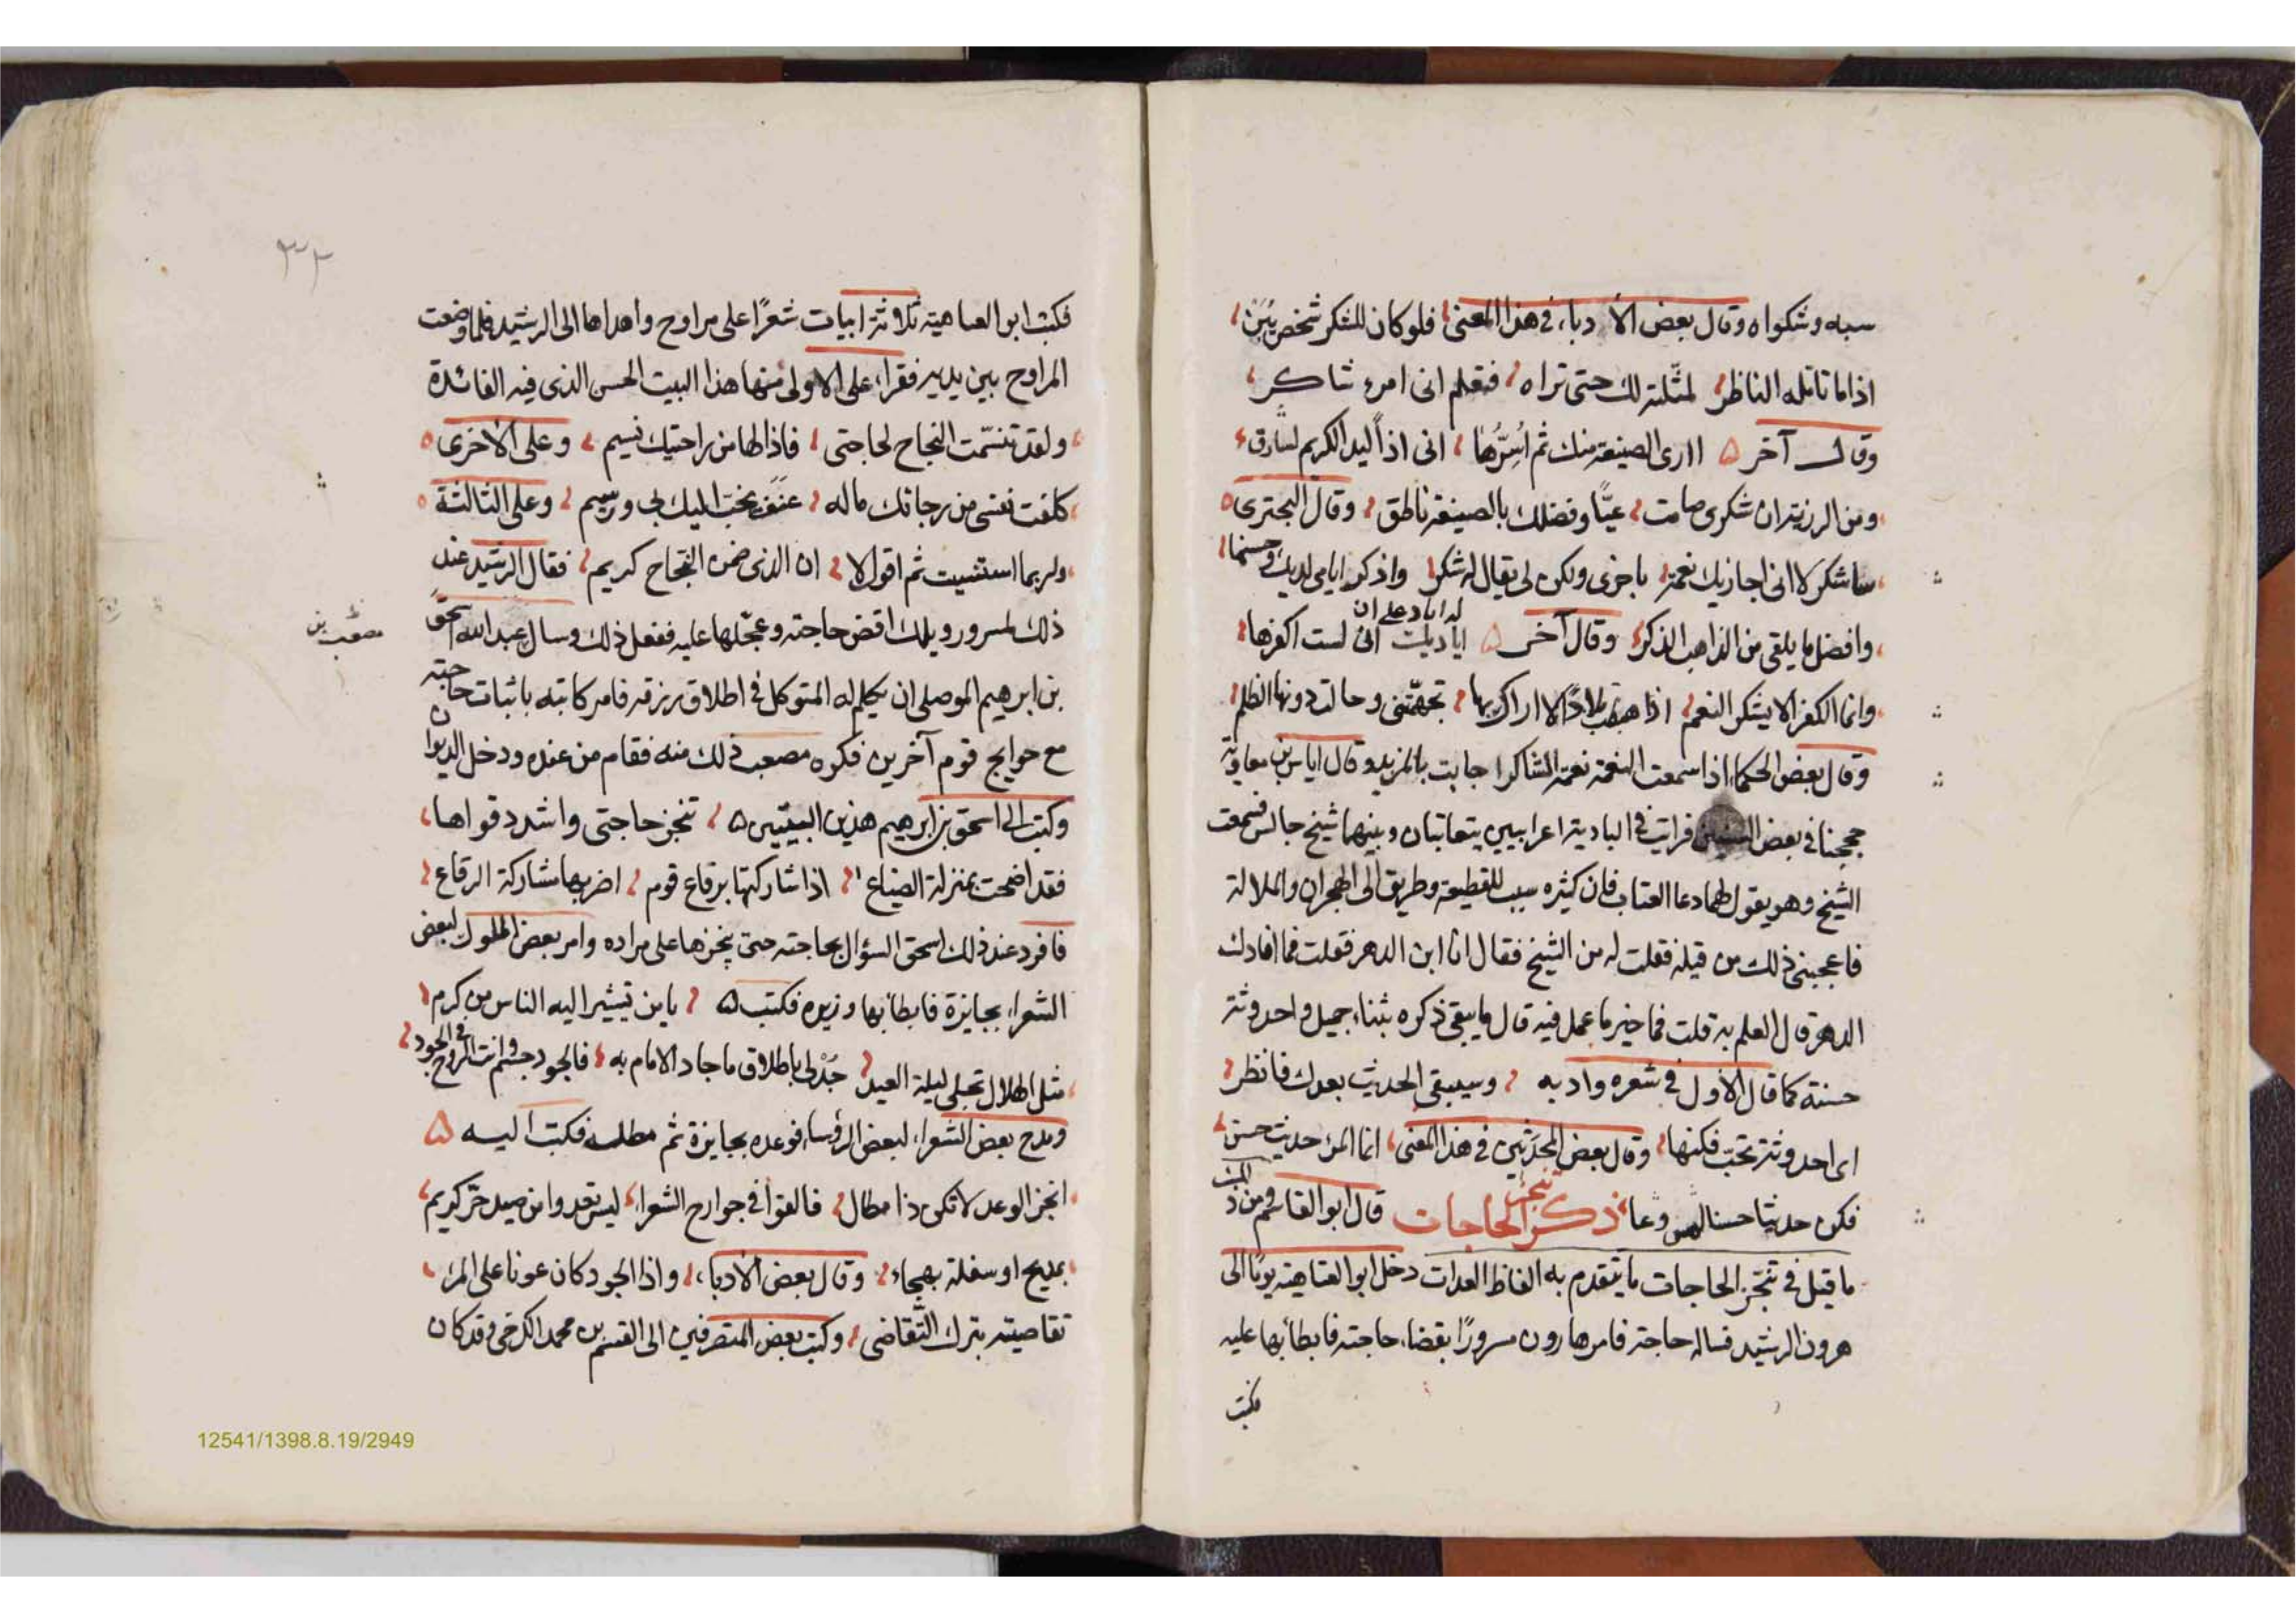 سببه وشكواه وقال بعض الأدباء في هذا المعنى فلو كان للشكر شخص يبين
اذا ما تأمله الناظر لمثلته لك حتى تراه فتعلم انى امرء شاكر
وقال آخر أارى الصنيعة منك ثم أسرها انى اذاً ليد الكريم لسارق
ومن الرزية ان شكرى صامت عيّا وفضلك بالصنيعة ناطق وقال البحترى
ساشكر لا انى اجازيك نعمة باخرى ولكن لى يقال له شكر واذكر ايامى لديك وحسنها
وافضل ما يلقى من الذاهب الذكر وقال آخر اياديك انى لست اكفرها
له اياد على ان
وانما الكفر الا يشكر النعم اذا هبطت بلادًا لا اراك بها تجهمتنى وحالت دونها الظلم
وقال بعض الحكماء اذا سمعت النغمة نعمة الشاكر اجابت بالمزيد وقال اياس بن معاوية
حججنا في بعض السنين فرايت في البادية اعرابيين يتعاتبان وبينهما شيخ جالس فسمعت
الشيخ وهو يقول لهما دعا العتاب فان كثيره سبب للقطيعة وطريق الى الهجران والملالة
فاعجبنى ذلك من قيله فقلت له من الشيخ فقال انا ابن الدهر فقلت فما افادك
الدهر قال العلم به قلت فما خير ما عمل فيه قال ما يبقى ذكره بثناء جميل واحدوثة
حسنة كما قال الاول في شعره وادبه وسيبقى الحديث بعدك فانظر
اى احدوثة تحب فكنها وقال بعض المحدثين في هذا المعنى انما المرء حديث حسن
فكن حديثا حسنا لمن وعا ذكر تنجز الحاجات قال ابو القاسم ومن
ما قيل في تنجّز الحاجات ما يتقدم به الفاظ العدات دخل ابو العتاهية يومًا الى
هرون الرشيد فساله حاجة فامر هارون مسرورًا بقضاء حاجته فابطأ بها عليه
فكتب
٣٢
فكتب ابو العتاهية ثلاثة ابيات شعرًا على مراوح واهداها الى الرشيد فلما وضعت
المراوح بين يديه فقراء على الاولى منها هذا البيت الحسن الذى فيه الفائدة
ولقد تنسّمت النجاح لحاجتى فاذا لها من راحتيك نسيم وعلى الاخرى
كلفت نفسى من رجائك ماله عنَق يخب اليك بى ورسيم وعلى الثالثة
ولربما استئست ثم اقول لا ان الذى ضمن النجاح كريم فقال الرشيد عند
ذلك لمسرور ويلك اقض حاجته وعجّلها عليه ففعل ذلك وسال عبد الله اسحق
مصعب بن
بن ابرهيم الموصلى ان يكلم له المتوكل في اطلاق رزقه فامر كاتبه باثبات حاجته
مع حوايج قوم آخرين فكره مصعب ذلك منه فقام من عنده ودخل الديوان
وكتب الى اسحق بن ابرهيم هذين البيتين تنجز حاجتى واشدد قواها
فقد اضحت بمنزلة الضياع اذا شاركتها برقاع قوم اضر بها مشاركة الرقاع
فافرد عند ذلك اسحق السؤال بحاجته حتى ينجزها على مراده وامر بعض الملوك لبعض
الشعراء بجايزة فابطأ بها وزيره فكتب يا من تشير اليه الناس من كرم
مثل الهلال تجلى ليلة العيد جُدْ لى باطلاق ما جاد الامام به فالجود جسم وانت الروح في الجود
ومدح بعض الشعراء لبعض الرؤساء فوعده بجايزة ثم مطله فكتب اليه
انجز الوعد لا تكن ذا مطال فالقوا في جوارح الشعراء ليس تعدوا من صيد حرّ كريم
بمديح او سفلة بهجاء وقال بعض الادباء واذا الجود كان عونا على المرء
تقاضيته بترك التّقاضى وكتب بعض المتصرفين الى القسم بن محمد الكرخى وقد كان
12541/1398.8.19/2949